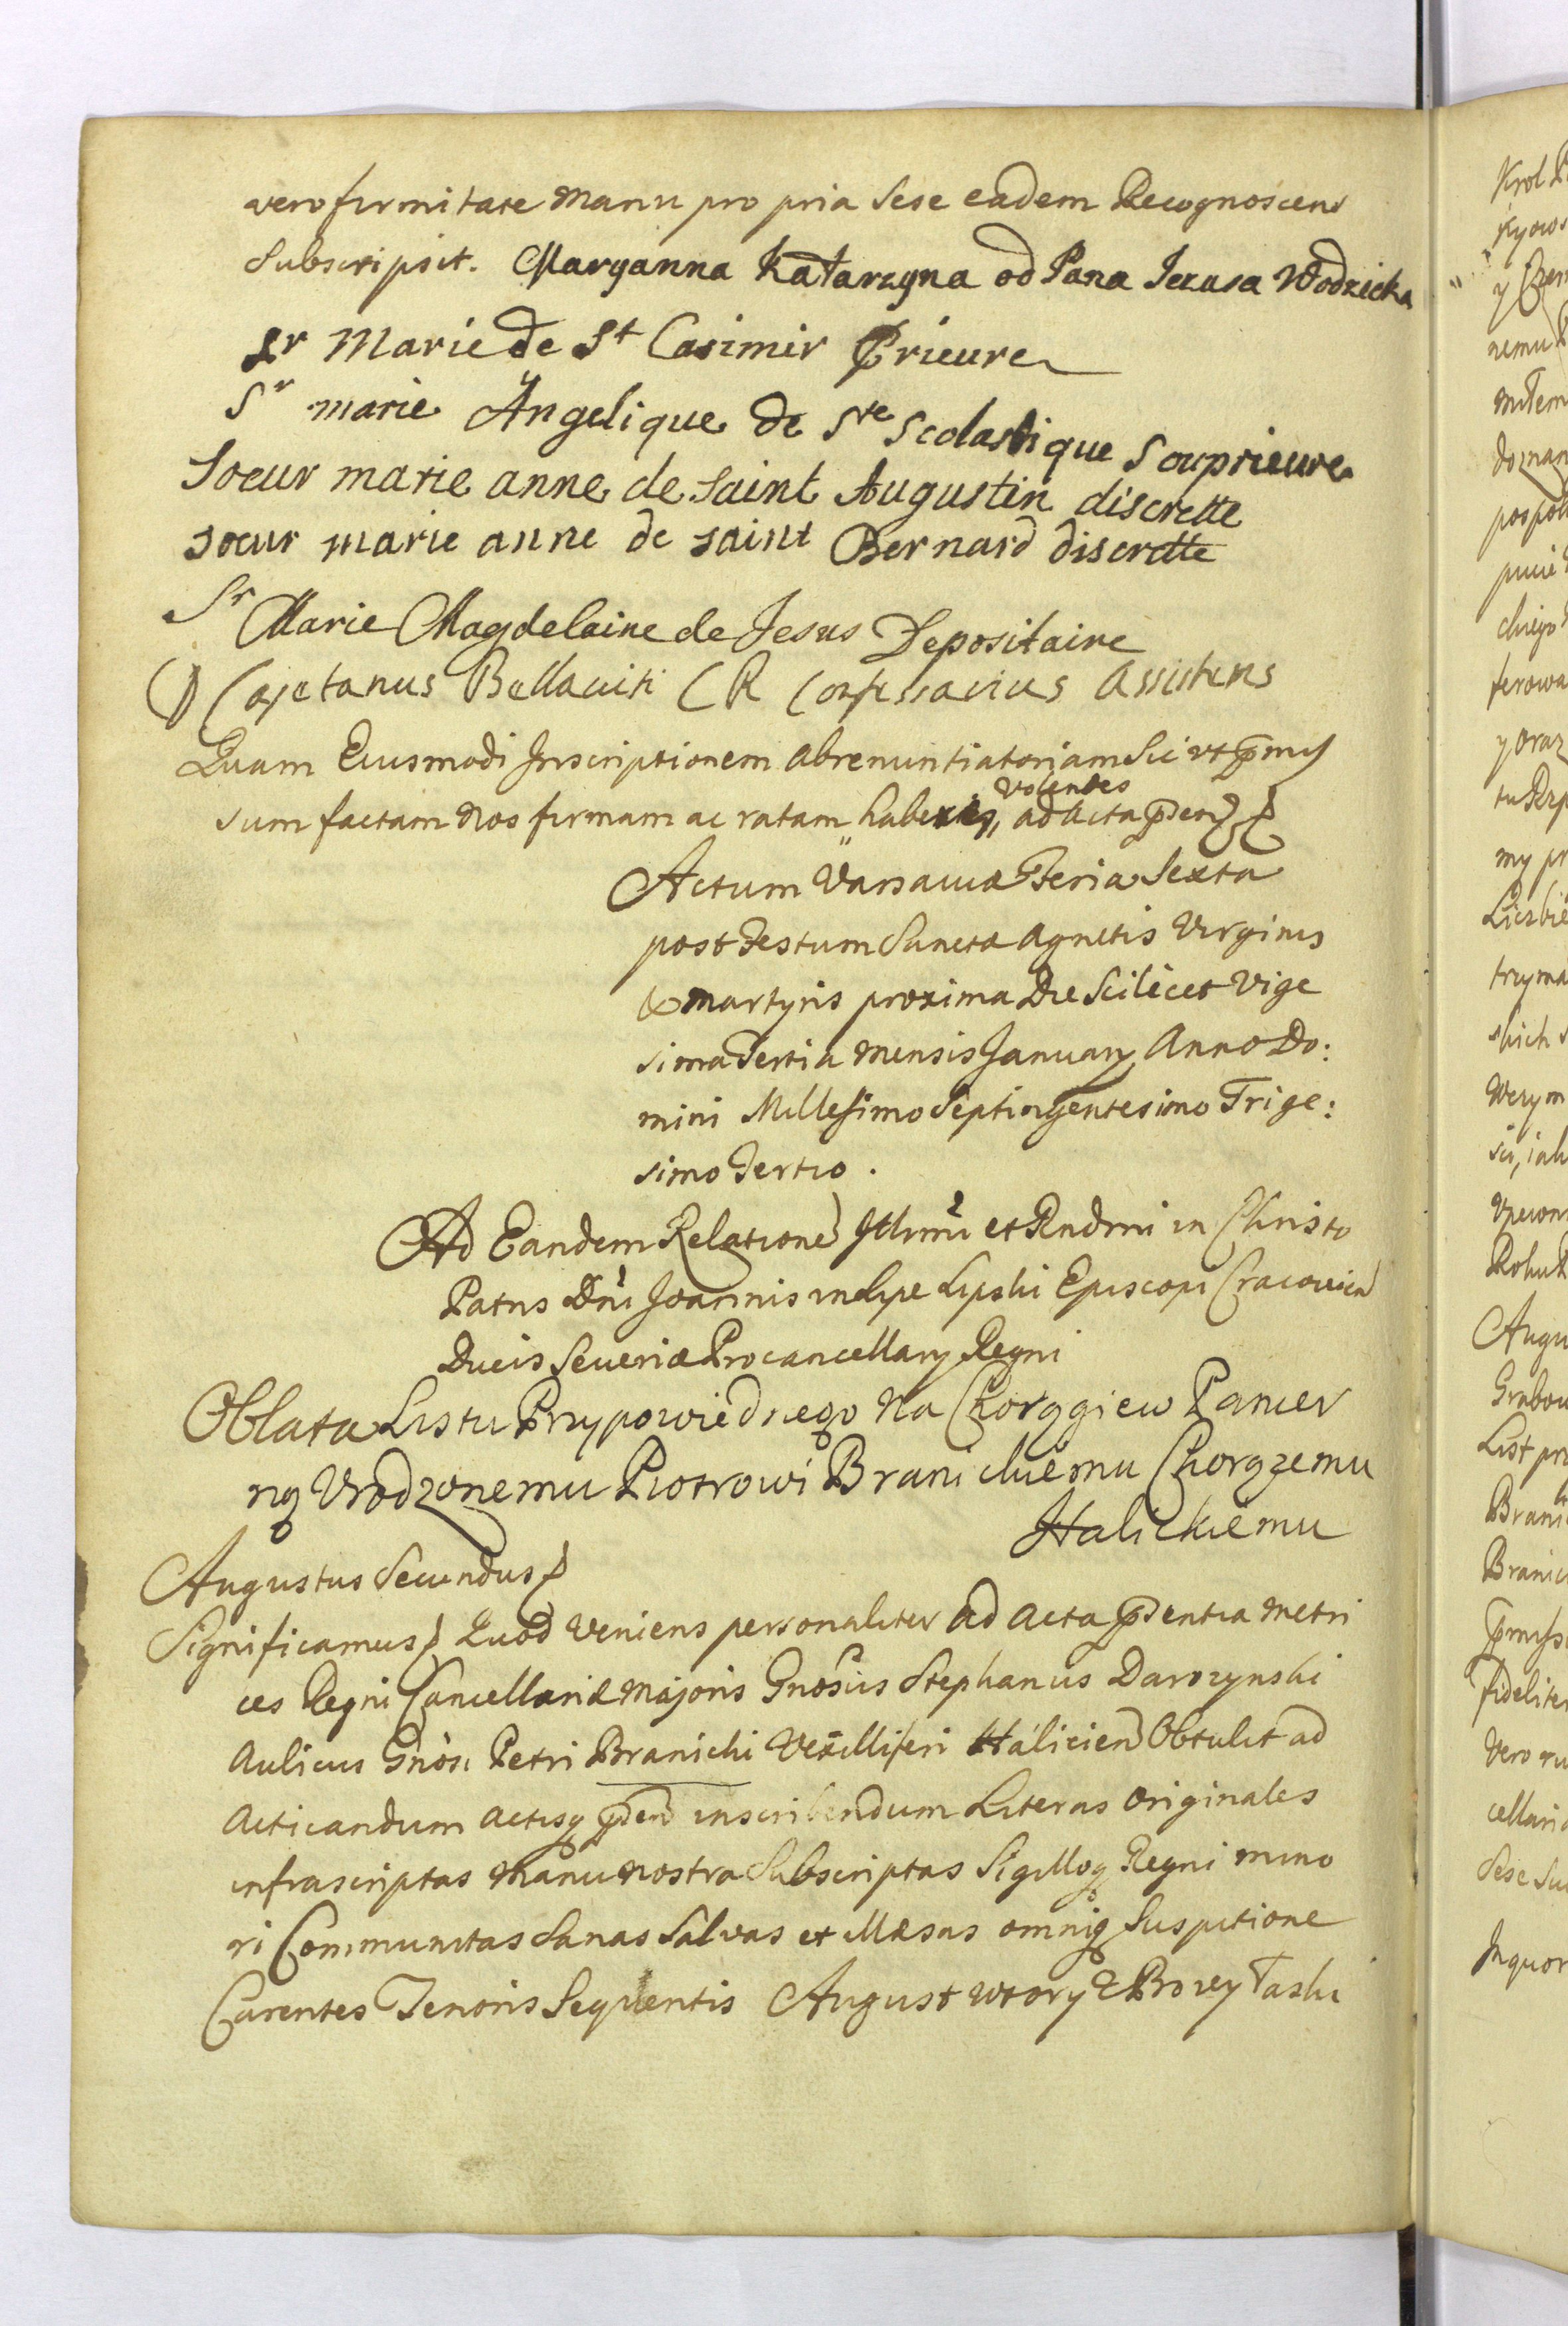 vero firmitate manu pro pria Sese eadem Recognoscens
Subscripsit. Maryanna Katarzyna od Pana Jezusa Wodzicka
Sr Marie de St Casimir Prieure
Sr marie Angelique de Ste Scolastique Souprieure
Soeur marie anne de Saint Augustin discrette
soeur marie anne de saint Bernard discrette
Sr Marie Magdelaine de Jesus Depositaire
D Cajetanus Bellaviti C R Confessarius Assistens
Quam Eiusmodi Inscriptionem abrenuntiatoriam Sic vt p̃mis
sum factam nos firmam ac ratam habere volentes ad acta p̃sen
Actum Varsaviæ Feria Sexta
post Festum Sanctæ Agnetis Virginis
& martyris proxima Die Scilicet Vige
sima Tertia mensis January Anno Do:
mini Millesimo Septingentesimo Trige:
simo Tertio.
Ad Eandem Relatione Illrmi et Rndmi in Christo
Patris Dni Joannis in Lipe Lipski Episcopi Cracovien
Ducis Severiæ Procancellary Regni
Oblata Listu Przypowiednego Na Chorągiew Pancer
ną Vrodzonemu Piotrowi Branickiemu Chorązemu
Halickiemu
Augustus Secundus
Significamus Quod Veniens personaliter ad acta p̃sentia metri
ces Regni Cancellariæ majoris Gnosus Stephanus Darozynski
Aulicus Gnosi Petri Branicki Vexilliferi Halicien Obtulit ad
Acticandum actisq p̃sen inscribendum Literas Originales
infrascriptas manu nostra Subscriptas Sigilloq Regni mino
ri Communitas Sanas Salvas et Illæsas omniq Suspitione
Carentes Tenoris Sequentis August wtory & Bozey Łaski